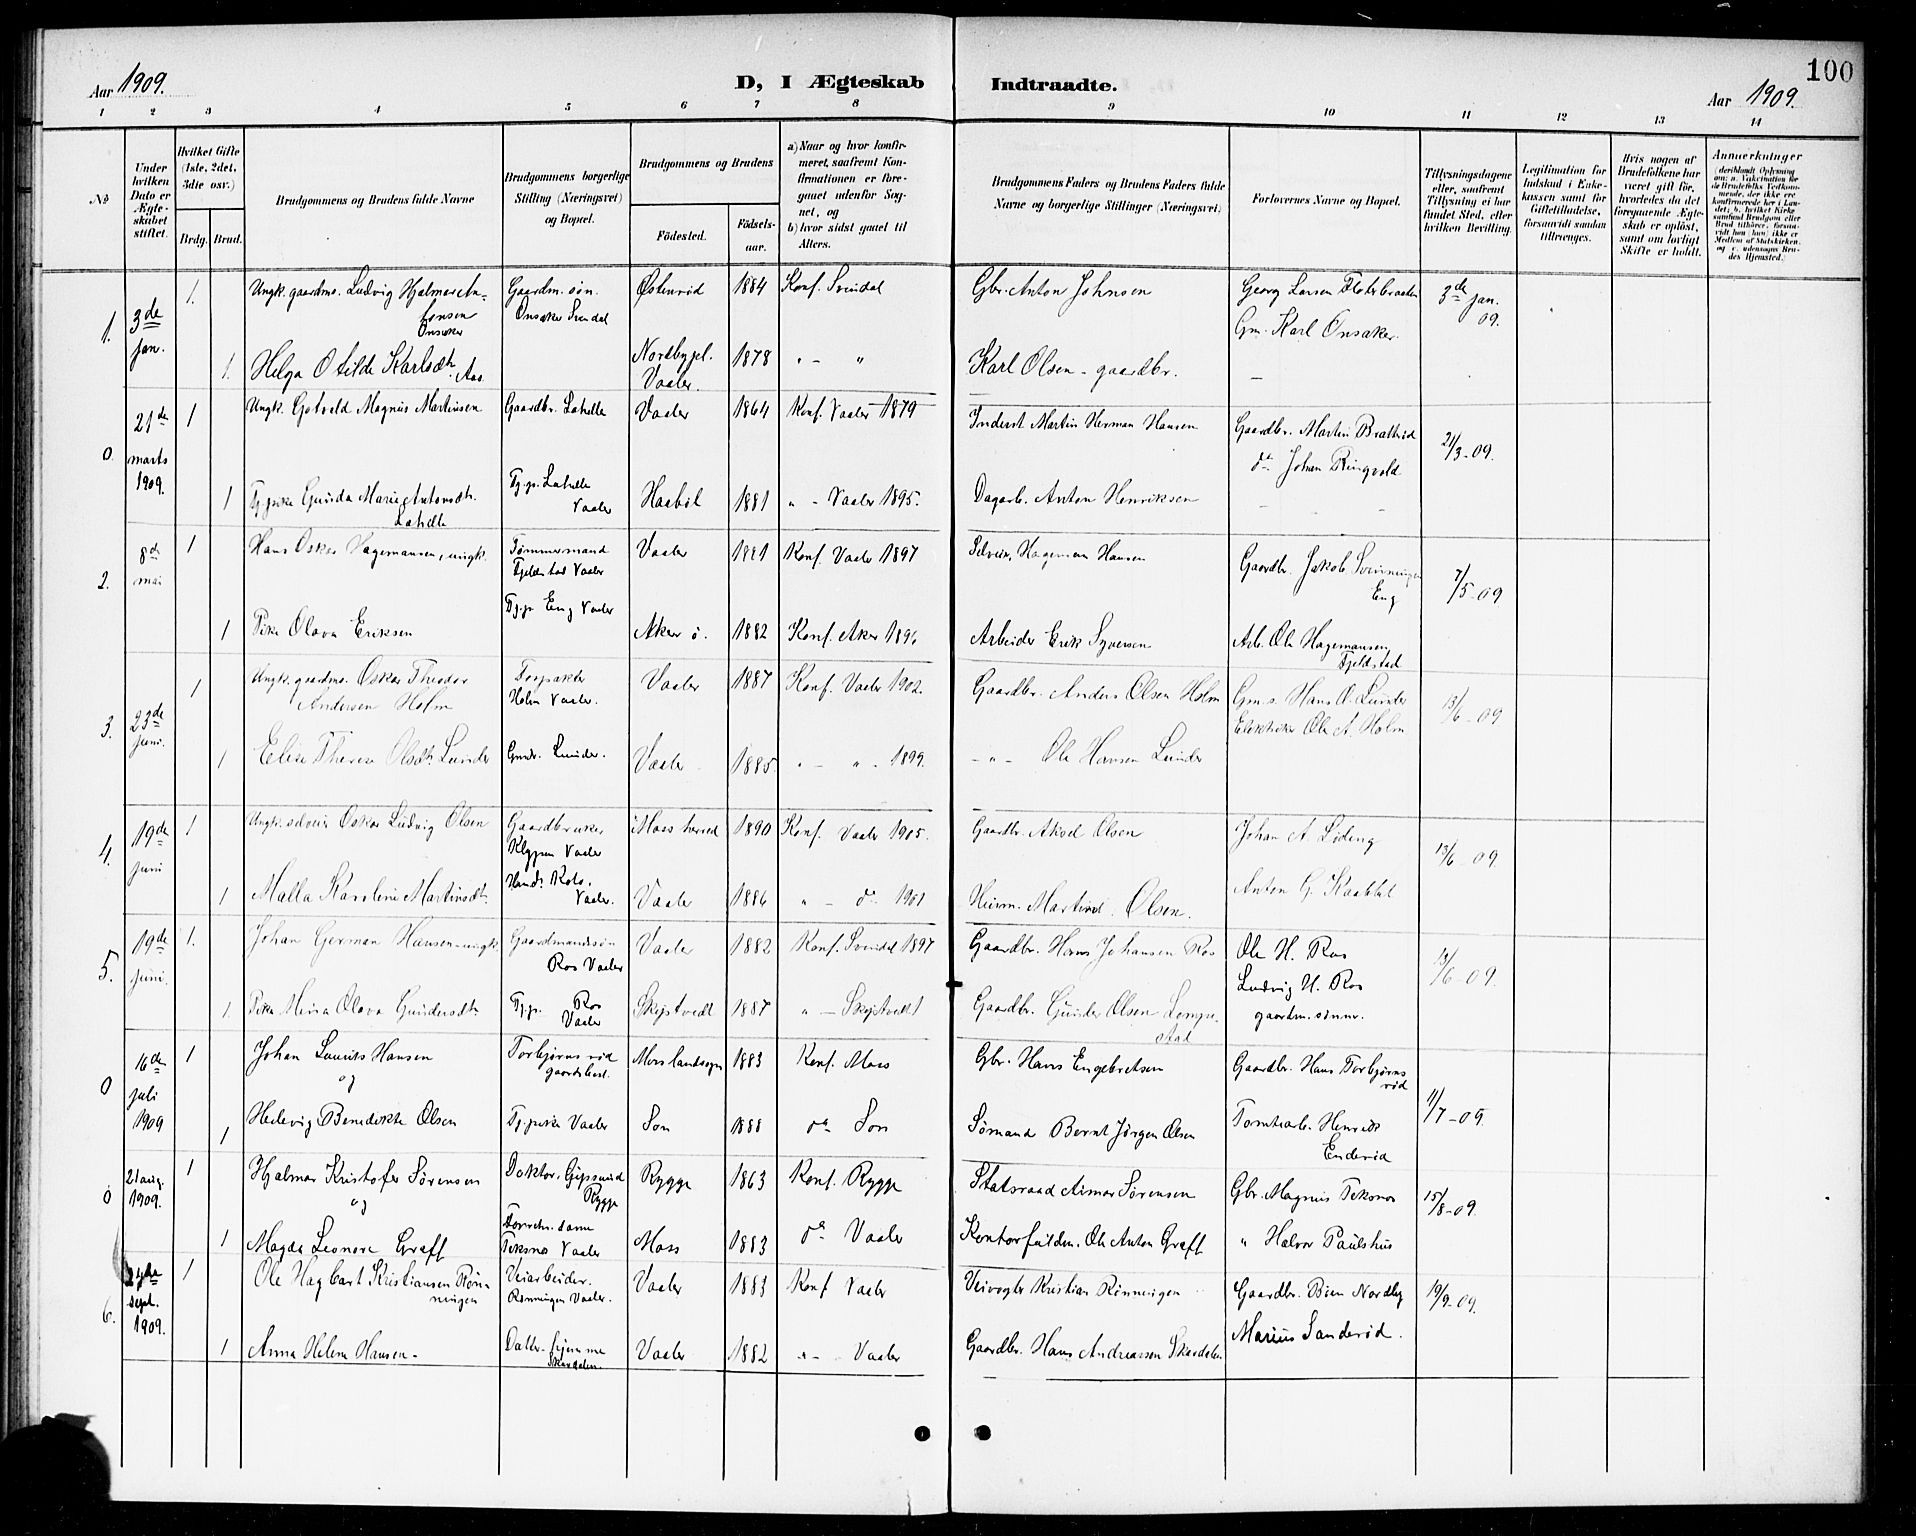 Aar 1909.
D, I Ægteskab Indtraadte.
Aar 1909.
100
1 2 3 4 5 6 7 8 9 10 11 12 13 14
No
Under hvilken Dato er Ægteskabet stiftet.
Hvilket Gifte (1ste, 2det, 3die osv.)
Brdg. Brud.
Brudgommens og Brudens fulde Navne
Brudgommens borgerlige Stilling (Næringsvei) og Bopæl.
Brudgommens og Brudens
Fødested.
Fødselsaar.
a) Naar og hvor konfirmeret, saafremt Konfirmationen er foregaaet udenfor Sognet, og
b) hvor sidst gaaet til Alters.
Brudgommens Faders og Brudens Faders fulde Navne og borgerlige Stillinger (Næringsvei)
Forlovernes Navne og Bopæl.
Tillysningsdagene eller, saafremt Tillysning ei har fundet Sted, efter hvilken Bevilling.
Legitimation for Indskud i Enkekassen samt for Giftetilladelse, forsaavidt saadan tiltrænges.
Hvis nogen af Brudefolkene har været gift før, hvorledes da det foregaaende Ægteskab er opløst, samt om lovligt Skifte er holdt.
Anmerkninger
1. 3de jan. 1. Ungk. gaardms. Ludvig Hjalmar Antonsen Onsaker Gaardm. søn. Onsaker Svindal Østenrød 1884 Konf. Svindal Gbr. Anton Johnsen Georg Larsen Gm. Karl Onsaker 3de jan. 09.
1. Helga Otilde Karlsdt. Aas Nordbypl. Vaaler. 1878 " - " Karl Olsen - gaardbr. -
0. 21de marts 1909. 1 Ungk. Gotveld Magnus Martinsen Gaardbr. Latelle Vaaler 1864 Konf. Vaaler 1879 Inderst Martin Herman Hansen Gaardbr. Martin Brattrød do Johan Ringvold 21/3-09.
1 Tj.pike Gunda Marie Antonsdt. Latelle Tj.p. Latelle Vaaler Haabøl 1881 " - Vaaler 1895. Dagarb. Anton Henriksen - -
2. 8de mai 1 Hans Oskar Hagemansen, ungk. Tømmermand Fjeldstad Vaaler Vaaler 1881 Konf. Vaaler 1897 Selveier Hageman Hansen Gaardbr. Jakob Svenningsen Eng 7/5-09
1 Pike Olava Eriksen Tj.p. Eng Vaaler Aker 1882 Konf. Aker Arbeider Erik Syversen Arb. Ole Hagemansen Fjeldstad
3. 23de juni. 1 Ungk. gaardms. Oskar Theodor Andersen Holm Forpakter Holm Vaaler. Vaaler 1887 Konf. Vaaler 1902. Gaardbr. Anders Olsen Holm Gm.s. Hans O. Lunder Elektriker Ole A. Holm 13/6-09
1 Elise Therese Olsdt. Lunder Gmdr. Lunder. Vaaler 1885. " - " - 1899. - " - Ole Hansen Lunder
4. 19de juni 1 Ungk. selveier Oskar Ludvig Olsen Gaardbruker Klypen Vaaler i Moss herred 1890 Konf. Vaaler 1905. Gaardbr. Aksel Olsen Johan A. Løding 13/6-09
1 Malla Karoline Martinsdt. Vaaler. Vaaler 1886 " - do 1901 Martin Olsen. Anton G.
5. 19de juni. 1. Johan German Hansen - ungk. Gaardmandssøn Ros Vaaler Vaaler 1882 Konf. Svindal 1897 Gaardbr. Hans Johansen Ros Ole H. Ros Ludvig H. Ros gaardm.sønner. 13/6-09.
1. Pike Mina Olava Gundersdt. Tj.p. Ros Vaaler Skjptvedt 1887 " - Skjptvedt Gaardbr. Gunder Olsen
0 16de juli 1909 1 Johan Laurits Hansen og Torbjørnsrød gaardsbest. Moss landsogn 1883 Konf. Moss Gbr. Hans Engebretsen Gaardbr. Hans Torbjørnsrød 11/7-09.
1 Hedevig Benedikte Olsen Tj.pike Vaaler Son 1888 do Son Sømand Bernt Jørgen Olsen Tomtearb. Henrik Enderød
0 21 aug. 1909. 1 Hjalmar Kristofer Sørensen og Doktor. Gipsund Rygge Rygge 1863 Konf. Rygge Statsraad Aimar Sørensen Gbr. Magnus Teksnes 15/8-09.
1 Magda Leonore Greff Teksnes Vaaler Moss 1883 do Vaaler Kontorfuldm. Ole Anton Greff " Halvor Paulshus
6. sept. 1909. 1 Ole Hagbart Kristiansen Rønningen Veiarbeider. Rønningen Vaaler. Vaaler 1883 Konf Vaaler Veivogter Kristian Rønningen Gaardbr. Bien Nordby 19/9-09.
1 Anna Helene Hansen - Datter hjemme Skardalen Vaaler 1882 " - Vaaler Gaardbr. Hans Andreassen Skardalen Marius Sanderød.